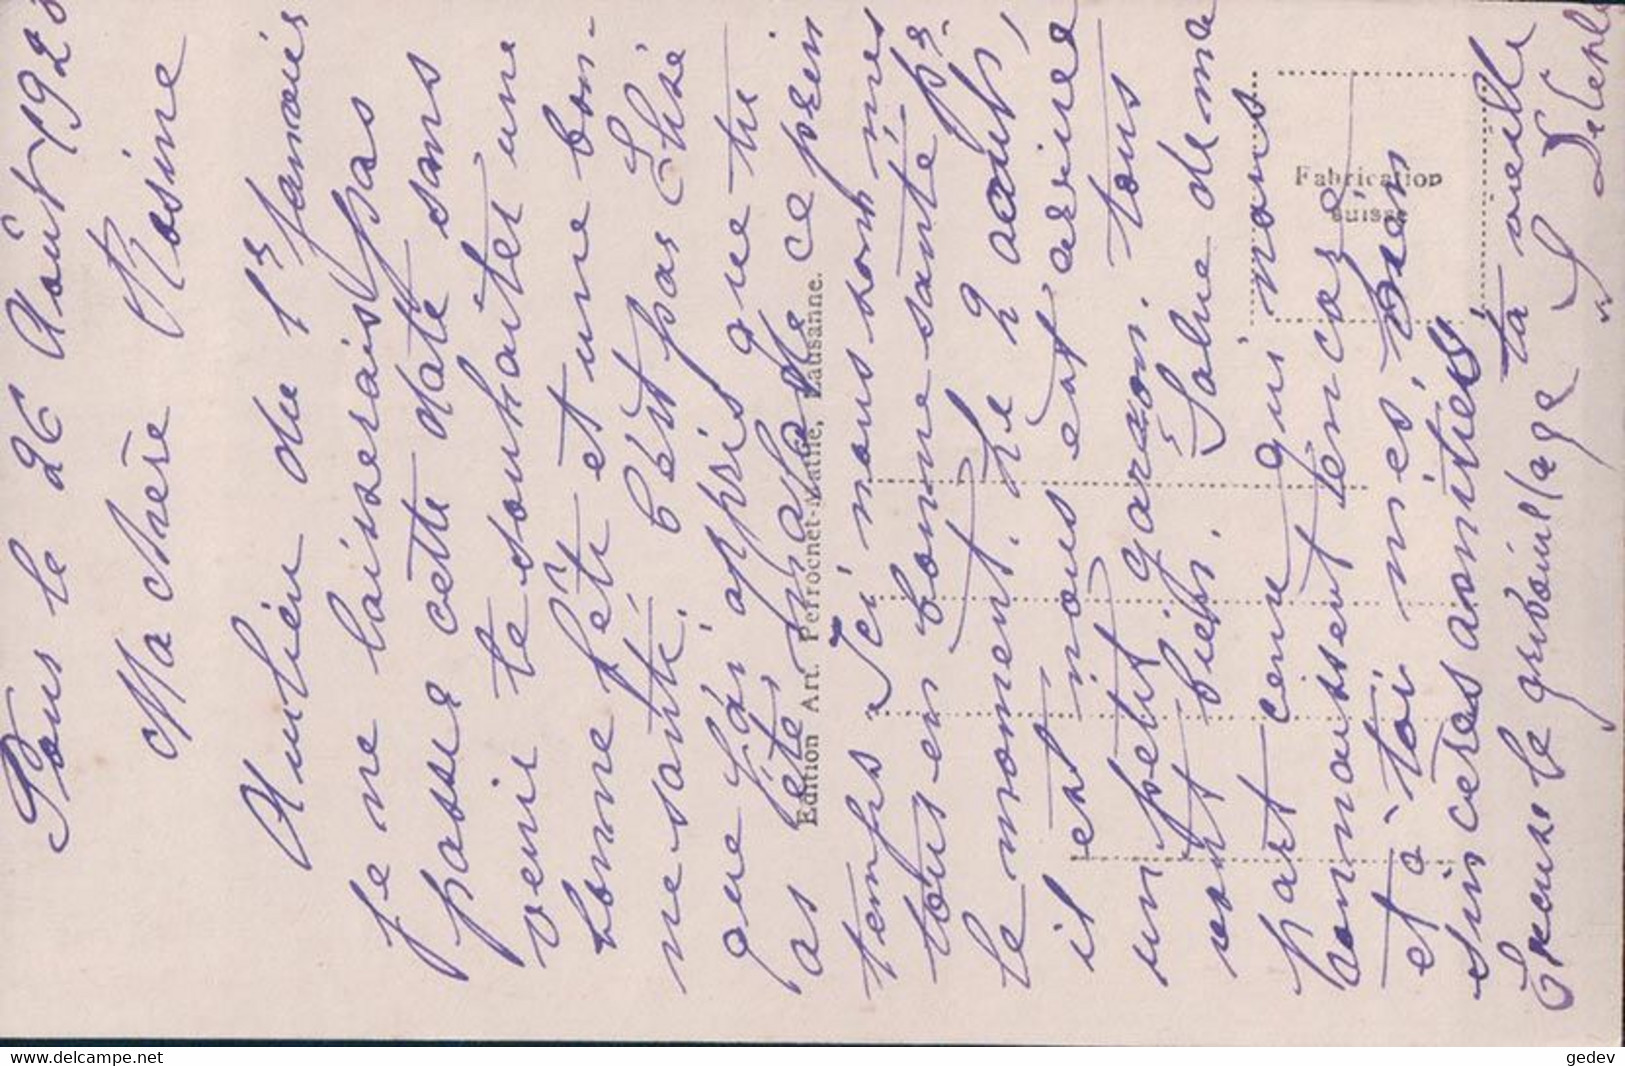 Pour le 26 Août 192
Ma chère Rosine
Au lieu du 1er janvier
je ne laisserais pas
passer cette date sans
venir te souhaiter une
bonne fête et une bon-
ne santé. C'est par Elise
que j'ai appris que tu
as été malade ce prin
temps. Ici nous sommes
tous en bonne santé pr.
le moment. Le 2 août,
il est nous est arrivé
un petit garçon. tous
vont bien. Salue de ma
part ceux qui nous
connaissent encore
et à toi mes bien
sincères amitiés
Excuse le gribouillage ta vieille
Fabrication
suisse
Edition Art. Perrochet-Matile, Lausanne.
www.delcampe.net
gedev